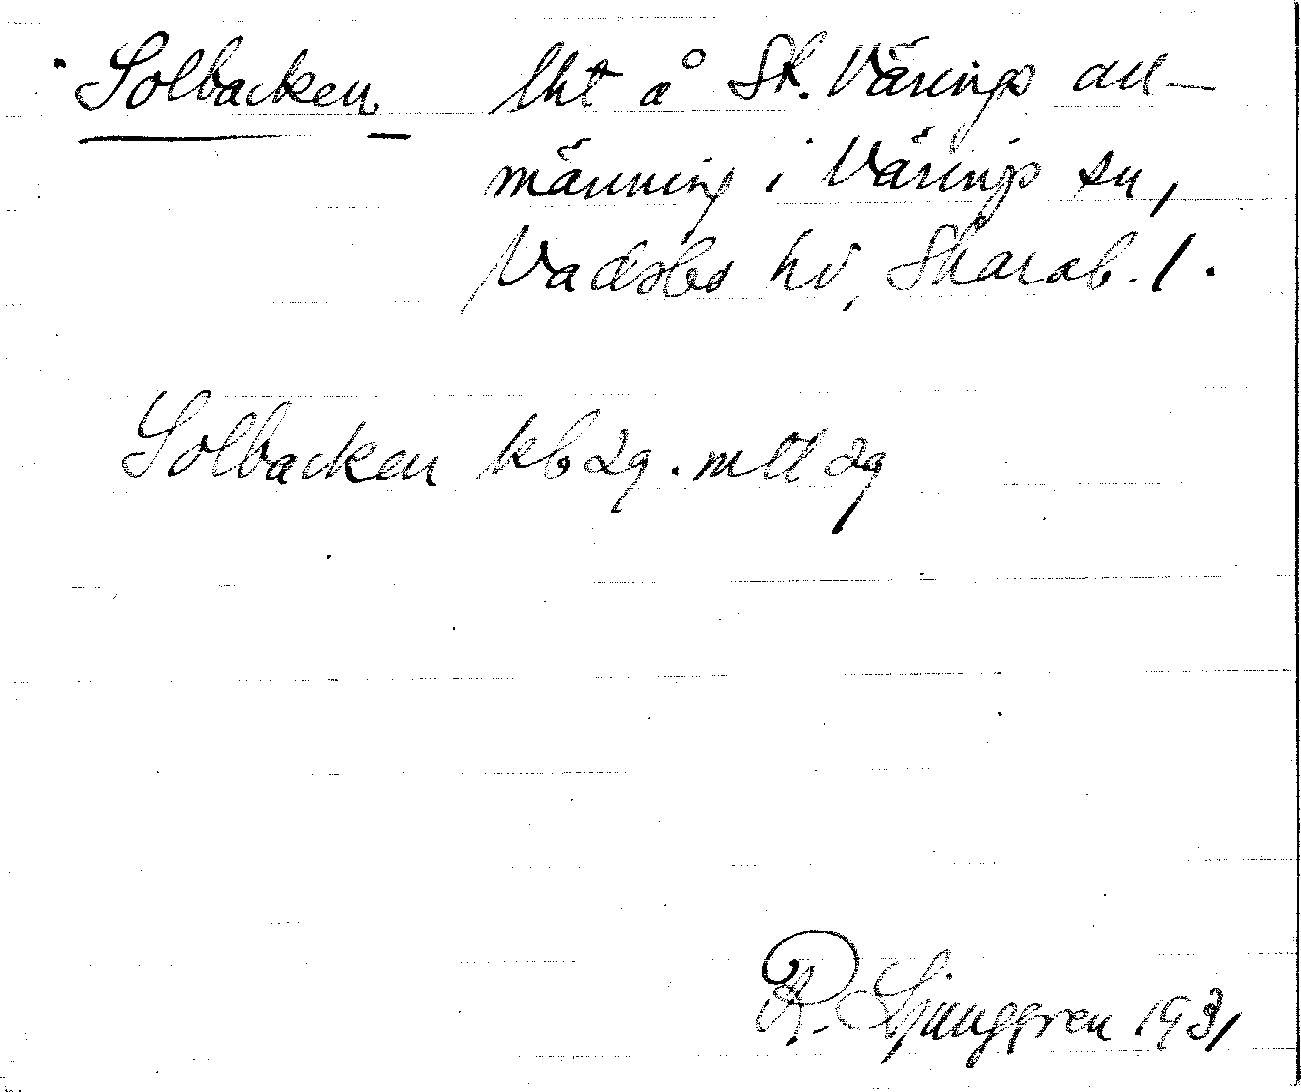 Solbacken lht å St. Värings all-
männing i Värings sn,
Vadsbo hd, Skarab. l.
Solbacken kb 29. mtl 29
R. Ljunggren 1931